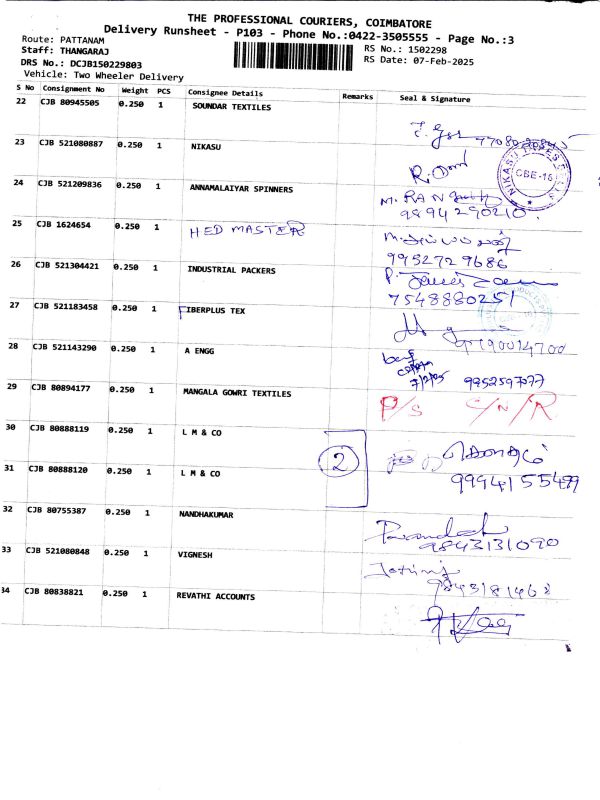 THE PROFESSIONAL COURIERS, COIMBATORE
Delivery Runsheet - P103 - Phone No.:0422-3505555 - Page No.:3
Route: PATTANAM
RS No.: 1502298
Staff: THANGARAJ
RS Date: 07-Feb-2025
DRS No.: DCJB150229803
Vehicle: Two Wheeler Delivery
S No Consignment No Weight PCS Consignee Details Remarks Seal & Signature
22 CJB 80945505 0.250 1 SOUNDAR TEXTILES
23 CJB 521080887 0.250 1 NIKASU
CBE-15
24 CJB 521209836 0.250 1 ANNAMALAIYAR SPINNERS
9894290210
25 CJB 1624654 0.250 1 HED MASTER
9952729686
26 CJB 521304421 0.250 1 INDUSTRIAL PACKERS
7548880251
27 CJB 521183458 0.250 1 FIBERPLUS TEX
28 CJB 521143290 0.250 1 A ENGG
7/2/25 9952597077
29 CJB 80894177 0.250 1 MANGALA GOWRI TEXTILES
P/S C/N/R
30 CJB 80888119 0.250 1 L M & CO
2
31 CJB 80888120 0.250 1 L M & CO
9994155499
32 CJB 80755387 0.250 1 NANDHAKUMAR
9843131090
33 CJB 521080848 0.250 1 VIGNESH
9843181462
34 CJB 80838821 0.250 1 REVATHI ACCOUNTS